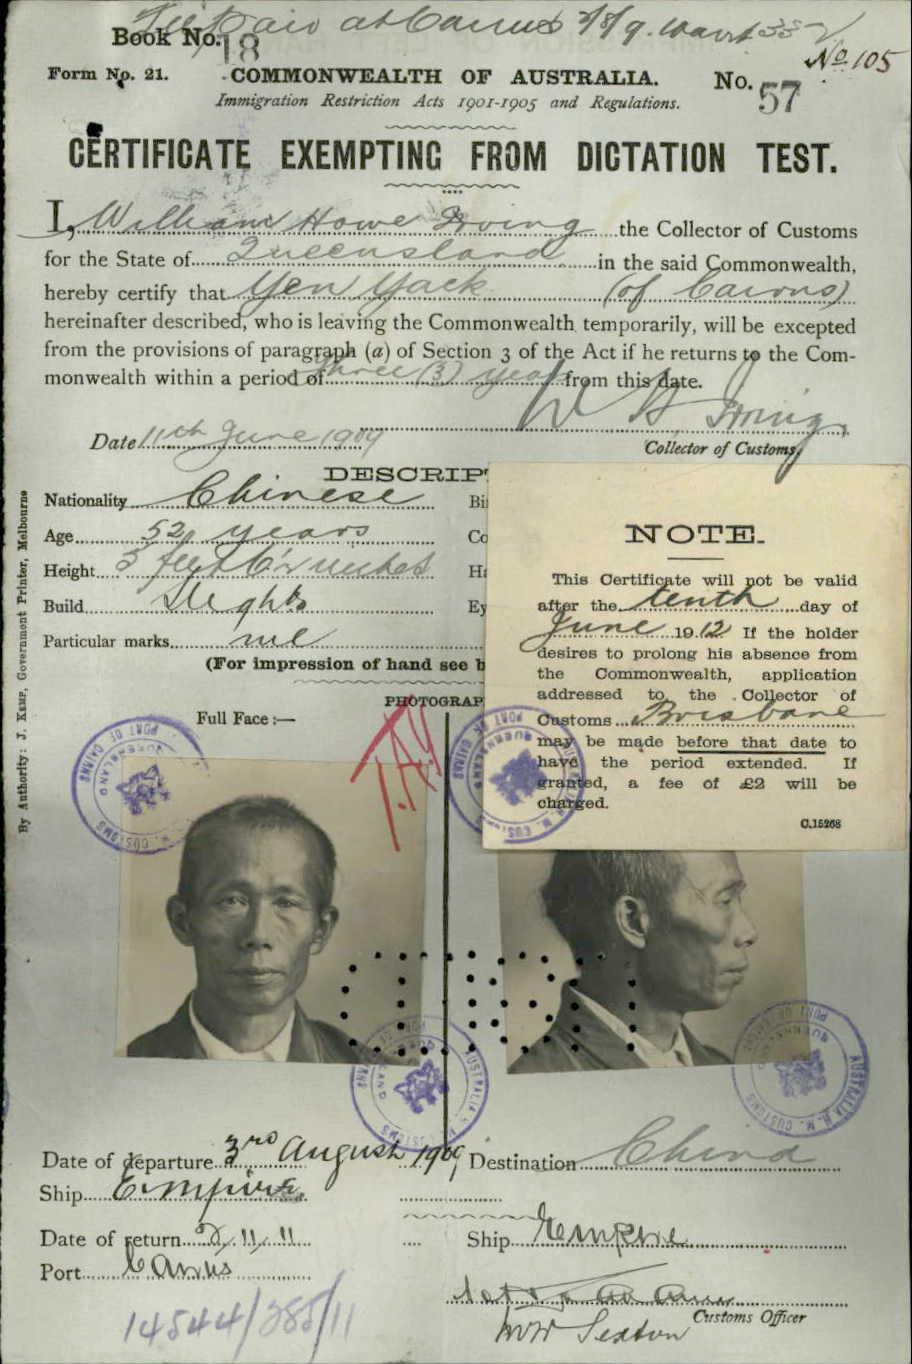 Book No. 18
No. 105
Form No. 21. COMMONWEALTH OF AUSTRALIA. No. 57
Immigration Restriction Acts 1901-1905 and Regulations.
CERTIFICATE EXEMPTING FROM DICTATION TEST.
I, William Howe Irving the Collector of Customs
for the State of Queensland in the said Commonwealth,
hereby certify that Yen Yack (of Cairns)
hereinafter described, who is leaving the Commonwealth temporarily, will be excepted
from the provisions of paragraph (a) of Section 3 of the Act if he returns to the Com-
monwealth within a period of three (3) years from this date.
W H Irving.
Date 11th June 1909
Collector of Customs,
DESCRIPT
Nationality Chinese
Age 52 years
Height 5 feet
Build Slight
Particular marks nil
(For impression of hand see b
PHOTOGRAP
Full Face:—
NOTE.
This Certificate will not be valid
after the tenth day of
June 1912 If the holder
desires to prolong his absence from
the Commonwealth, application
addressed to the Collector of
Customs Brisbane
may be made before that date to
have the period extended. If
granted, a fee of £2 will be
charged.
C.15268
By Authority: J. KEMP, Government Printer, Melbourne
PORT OF CAIRNS
QUEENSLAND
AUSTRALIA H. M. CUSTOMS
Date of departure 3rd August 1909 Destination China
Ship Empire
Date of return 2/11/11 Ship Empire
Port Cairns
Customs Officer
14544/385/11